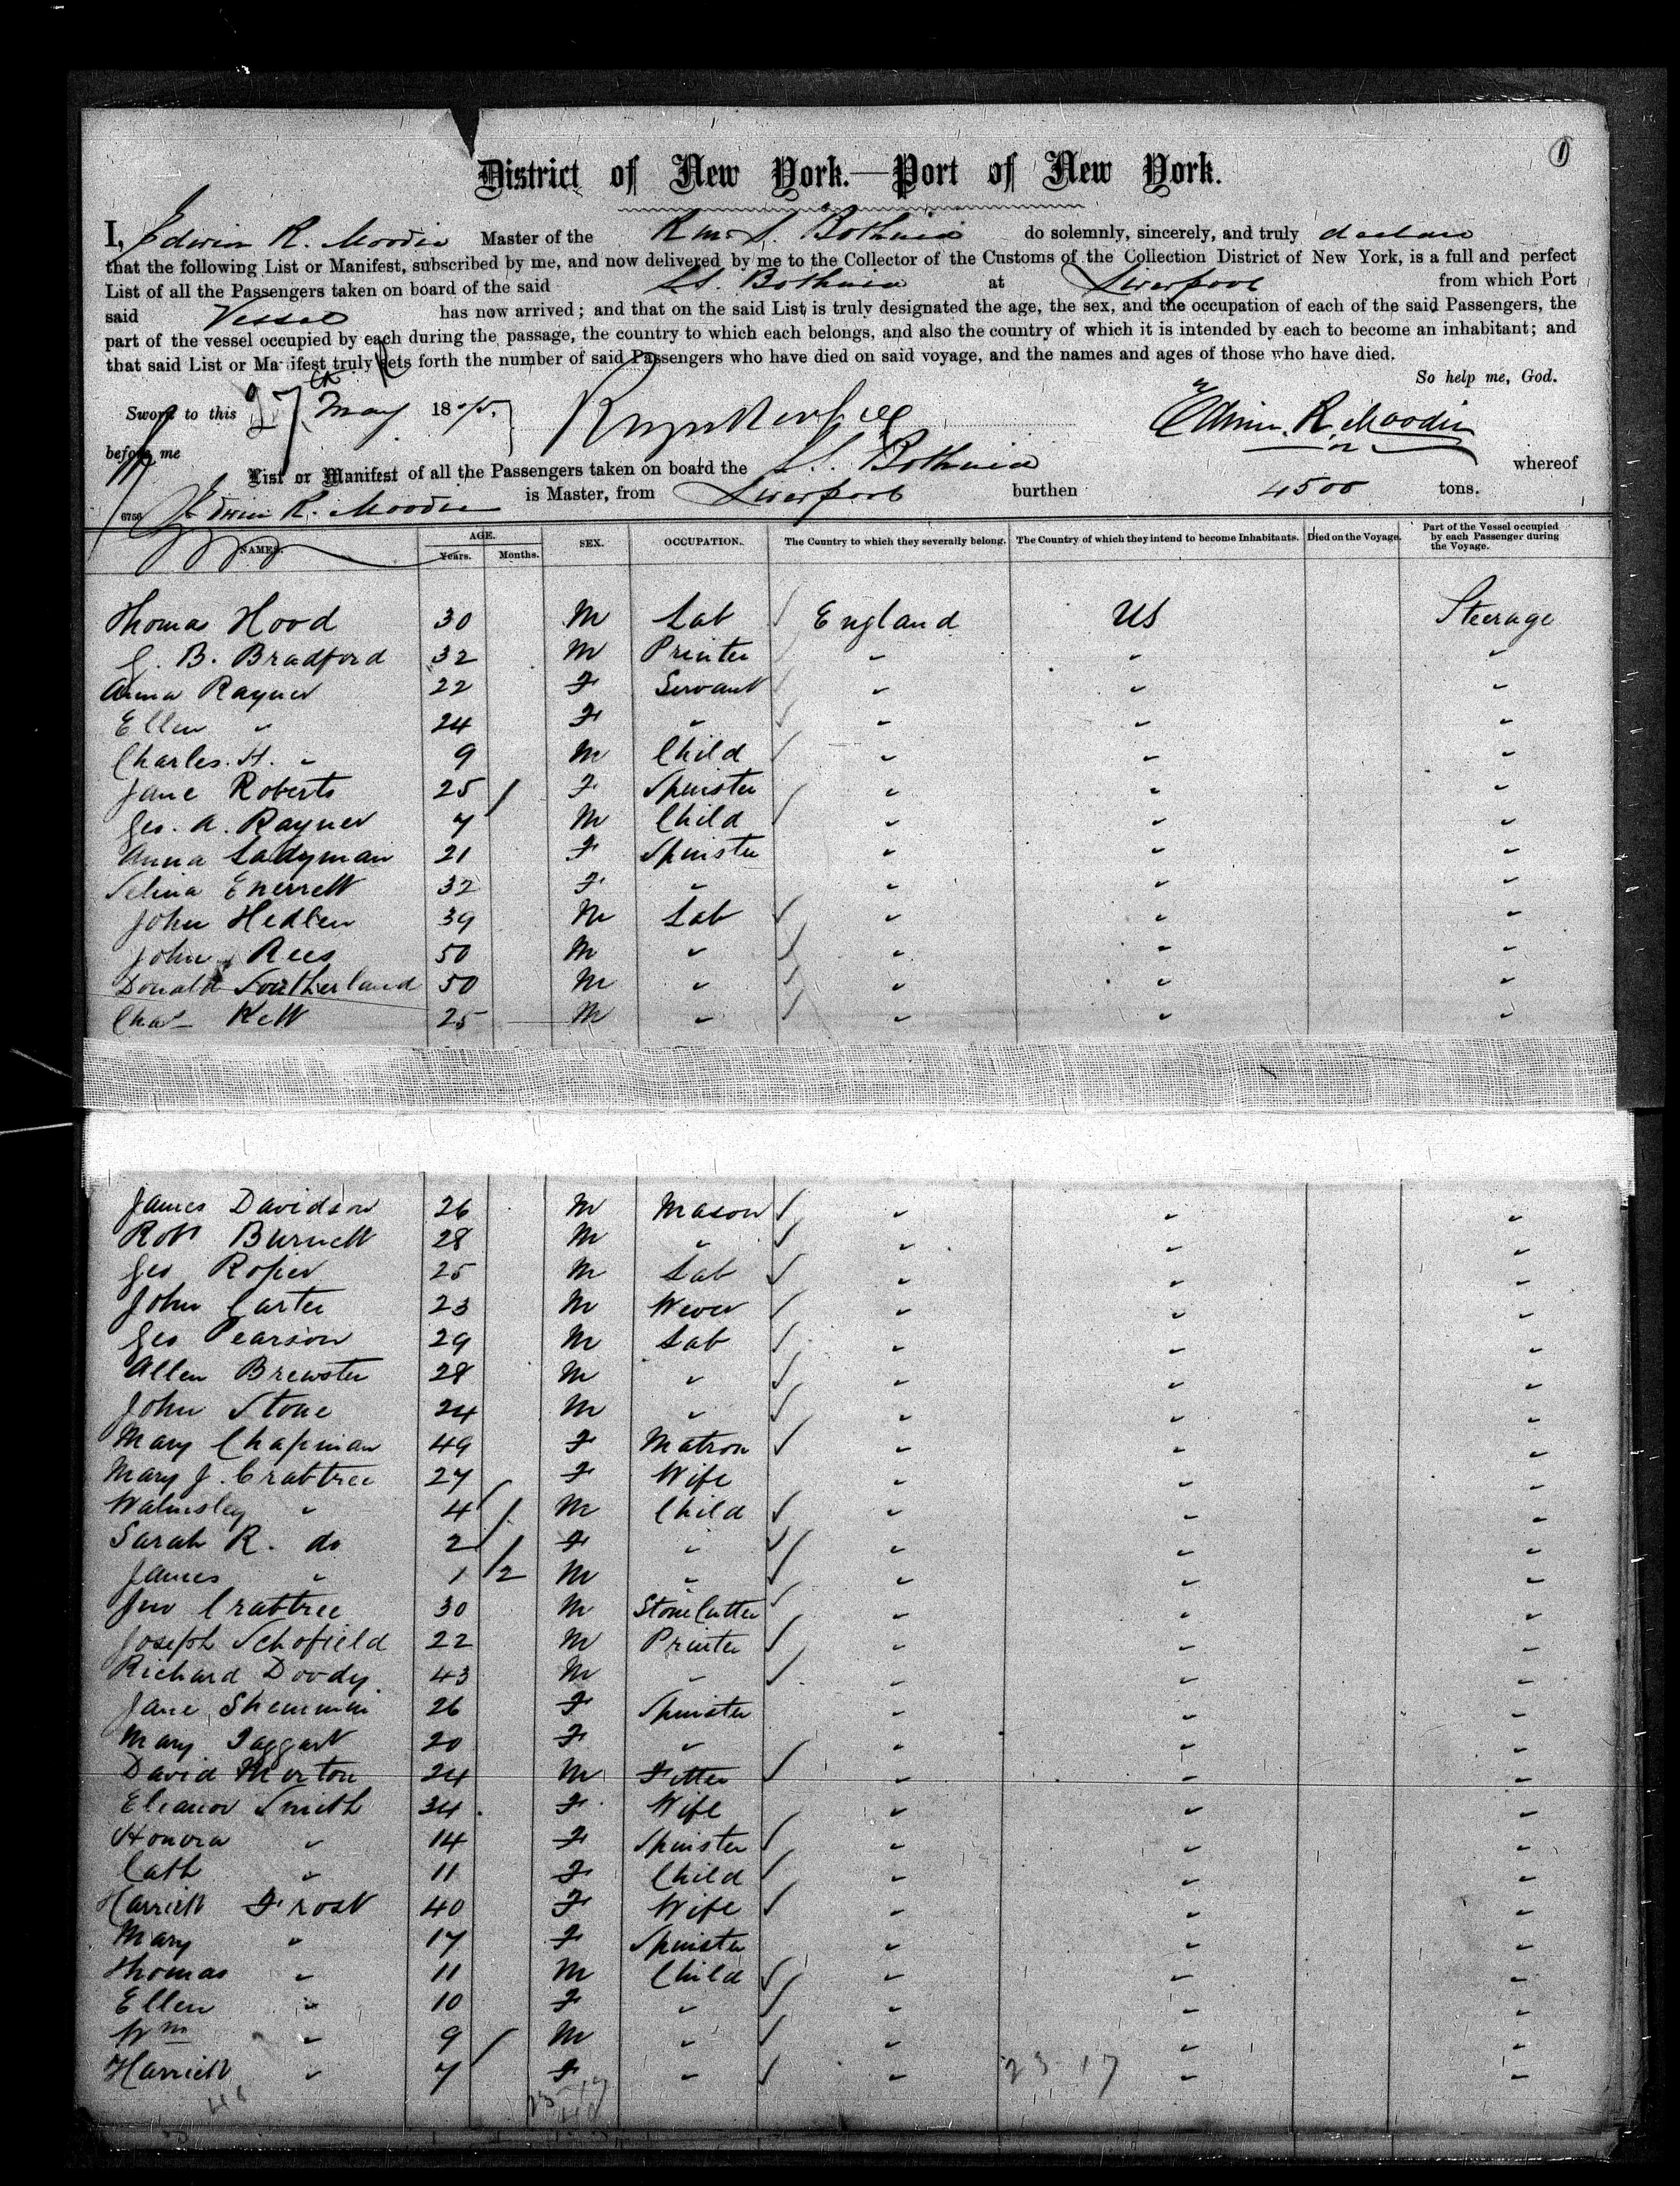 District of New York.—Port of New York.
I, Edwin R. Moodie Master of the R.M.S. Bothnia do solemnly, sincerely, and truly declare
that the following List or Manifest, subscribed by me, and now delivered by me to the Collector of the Customs of the Collection District of New York, is a full and perfect
List of all the Passengers taken on board of the said SS. Bothnia at Liverpool from which Port
said Vessel has now arrived; and that on the said List is truly designated the age, the sex, and the occupation of each of the said Passengers, the
part of the vessel occupied by each during the passage, the country to which each belongs, and also the country of which it is intended by each to become an inhabitant; and
that said List or Manifest truly sets forth the number of said Passengers who have died on said voyage, and the names and ages of those who have died.
So help me, God.
Sworn to this 27th May 1875. Edwin R. Moodie
before me
List or Manifest of all the Passengers taken on board the SS. Bothnia whereof
Edwin R. Moodie is Master, from Liverpool burthen 4500 tons.
6756
NAMES. AGE. Years. Months. SEX. OCCUPATION. The Country to which they severally belong. The Country of which they intend to become Inhabitants. Died on the Voyage. Part of the Vessel occupied by each Passenger during the Voyage.
Thomas Hood 30 M Lab England US Steerage
G. B. Bradford 32 M Printer " " "
Anna Rayner 22 F Servant " " "
Ellen " 24 F " " " "
Charles. H. " 9 M Child " " "
Jane Roberts 25 F Spinster " " "
Geo. A. Rayner 7 M Child " " "
Anna Ladyman 21 F Spinster " " "
Selina Enerrett 32 F " " " "
John Hedlen 39 M Lab " " "
John Rees 50 M " " " "
Donald Southerland 50 M " " " "
Chas Kett 25 M " " " "
James Davidson 26 M Mason " " "
Robt Burnett 28 M " " " "
Geo Roper 25 M Lab " " "
John Carter 23 M Wever " " "
Geo Pearson 29 M Lab " " "
Allen Brewster 28 M " " " "
John Stone 24 M " " " "
Mary Chapman 49 F Matron " " "
Mary J. Crabtree 27 F Wife " " "
Walmsley " 4 M Child " " "
Sarah R. do 2 F " " " "
James " 1 1/2 M " " " "
Jno Crabtree 30 M Stone Cutter " " "
Joseph Schofield 22 M Printer " " "
Richard Doody 43 M " " " "
Jane Shemmin 26 F Spinster " " "
Mary Taggart 20 F " " " "
David Morton 24 M Fitter " " "
Eleanor Smith 34 F Wife " " "
Honora " 14 F Spinster " " "
Cath " 11 F Child " " "
Harriett Frost 40 F Wife " " "
Mary " 17 F Spinster " " "
Thomas " 11 M Child " " "
Ellen " 10 F " " " "
Wm " 9 M " " " "
Harriett " 7 F " " " "
23 17